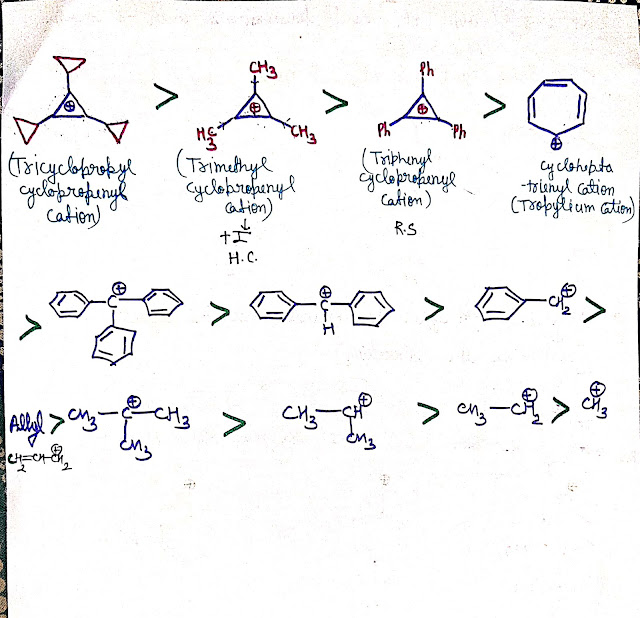 CH3
Ph
⊕ > ⊕ > ⊕ >
H3C CH3 Ph Ph ⊕
(Tricyclopropyl cyclopropenyl Cation)
(Trimethyl cyclopropenyl Cation)
+I
H.C.
(Triphenyl cyclopropenyl Cation)
R.S
cyclohepta
-trienyl Cation
(Tropylium Cation)
> C⊕ > C⊕ > CH2⊕ >
H
Allyl > CH3-C⊕-CH3 > CH3-CH⊕ > CH3-CH2⊕ > CH3⊕
CH2=CH-CH2⊕ CH3 CH3